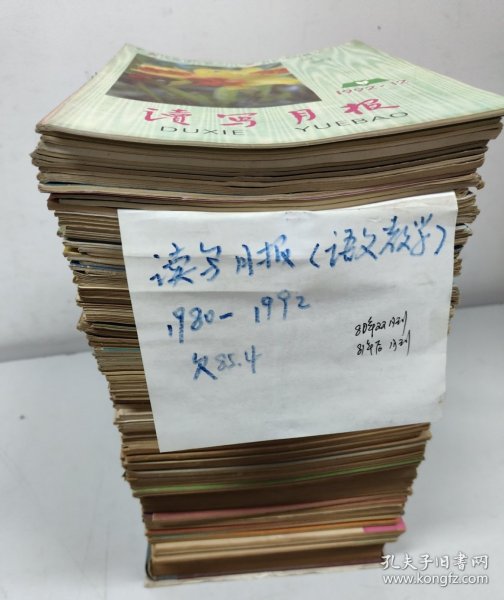 1992·12
读写月报
DUXIE YUEBAO
读写月报(语文教学)
1980-1992
欠85.4
80年双月刊
81年后月刊
孔夫子旧书网
www.kongfz.com